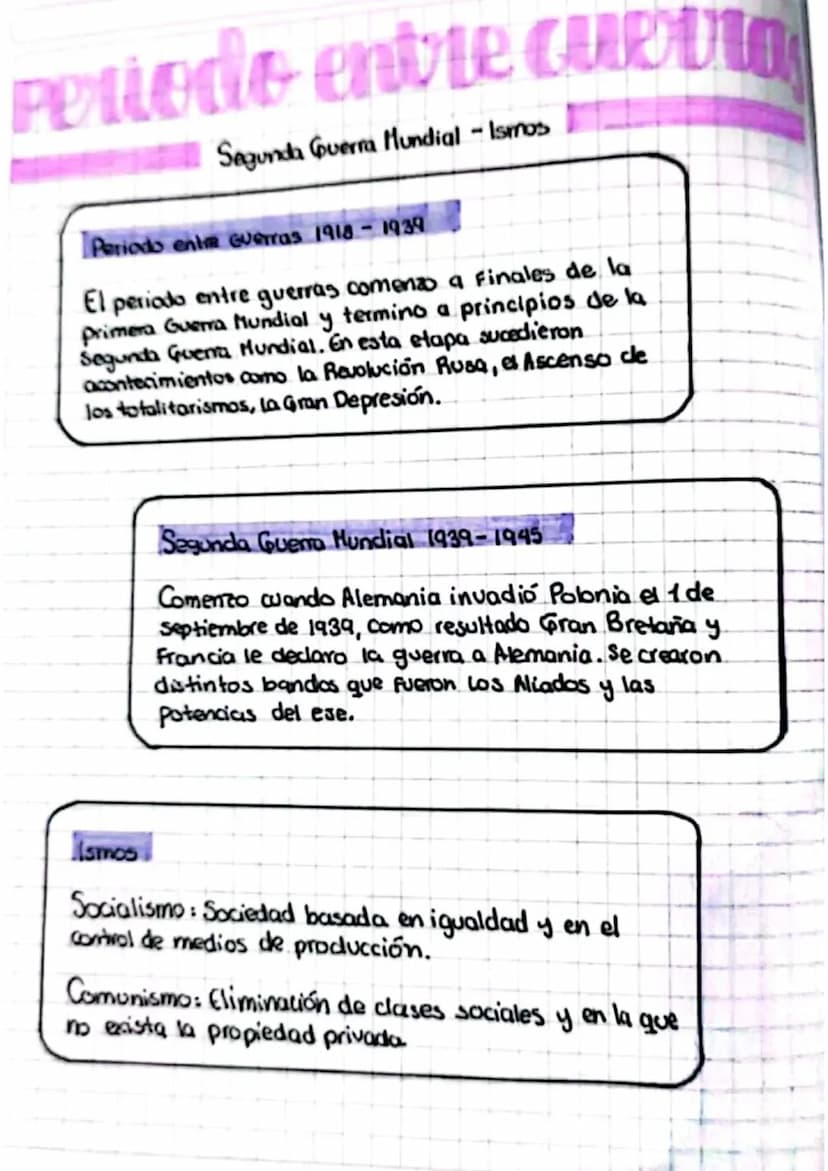 Periodo entre Guerras
Segunda Guerra Mundial - Ismos
Periodo entre Guerras 1918 - 1939
El periodo entre guerras comenzo a Finales de la
primera Guerra Mundial y termino a principios de la
Segunda Guerra Mundial. En esta etapa sucedieron
acontecimientos como la Revolución Rusa, el Ascenso de
los totalitarismos, La Gran Depresión.
Segunda Guerra Mundial 1939-1945
Comenzo cuando Alemania invadió Polonia el 1 de
septiembre de 1939, como resultado Gran Bretaña y
Francia le declaro la guerra a Alemania. Se crearon
distintos bandos que fueron Los Aliados y las
potencias del eje.
Ismos
Socialismo: Sociedad basada en igualdad y en el
control de medios de producción.
Comunismo: Eliminación de clases sociales y en la que
no exista la propiedad privada